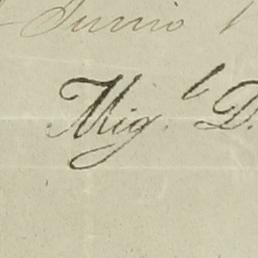 Junio 1
Mig.l D.